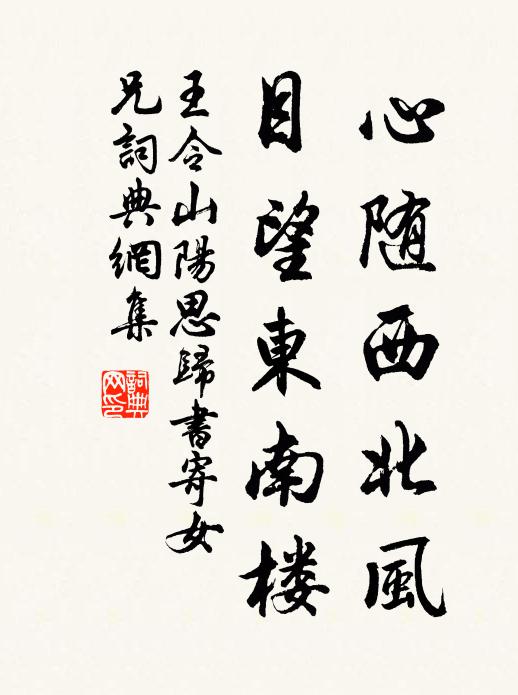 心随西北風
目望東南楼
王令山陽思歸書寄女
兄詞典網集
詞典
网印